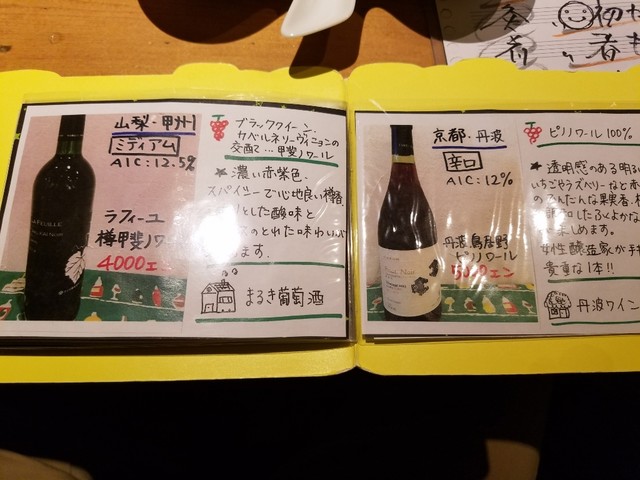 山梨・甲州
ミディアム
AIC:12.5%
ラフィーユ
樽甲斐ノワ
4000エン
ブラッククイーン、
カベルネソーヴィニヨンの
交配で…甲斐ノワール
★濃い赤紫色。
スパイシーで心地良い樽香
とした酸味と
のとれた味わい
ます。
まるき葡萄酒
京都・丹波
辛口
AIC:12%
丹波鳥居野
ピノノワール
エン
ピノノワール100%
★透明感のある明る
いちごやラズベリーなど赤
果実香、
ふくよかな
楽しめます。
女性醸造家が手
貴重な1本!!
丹波ワイン
初
者